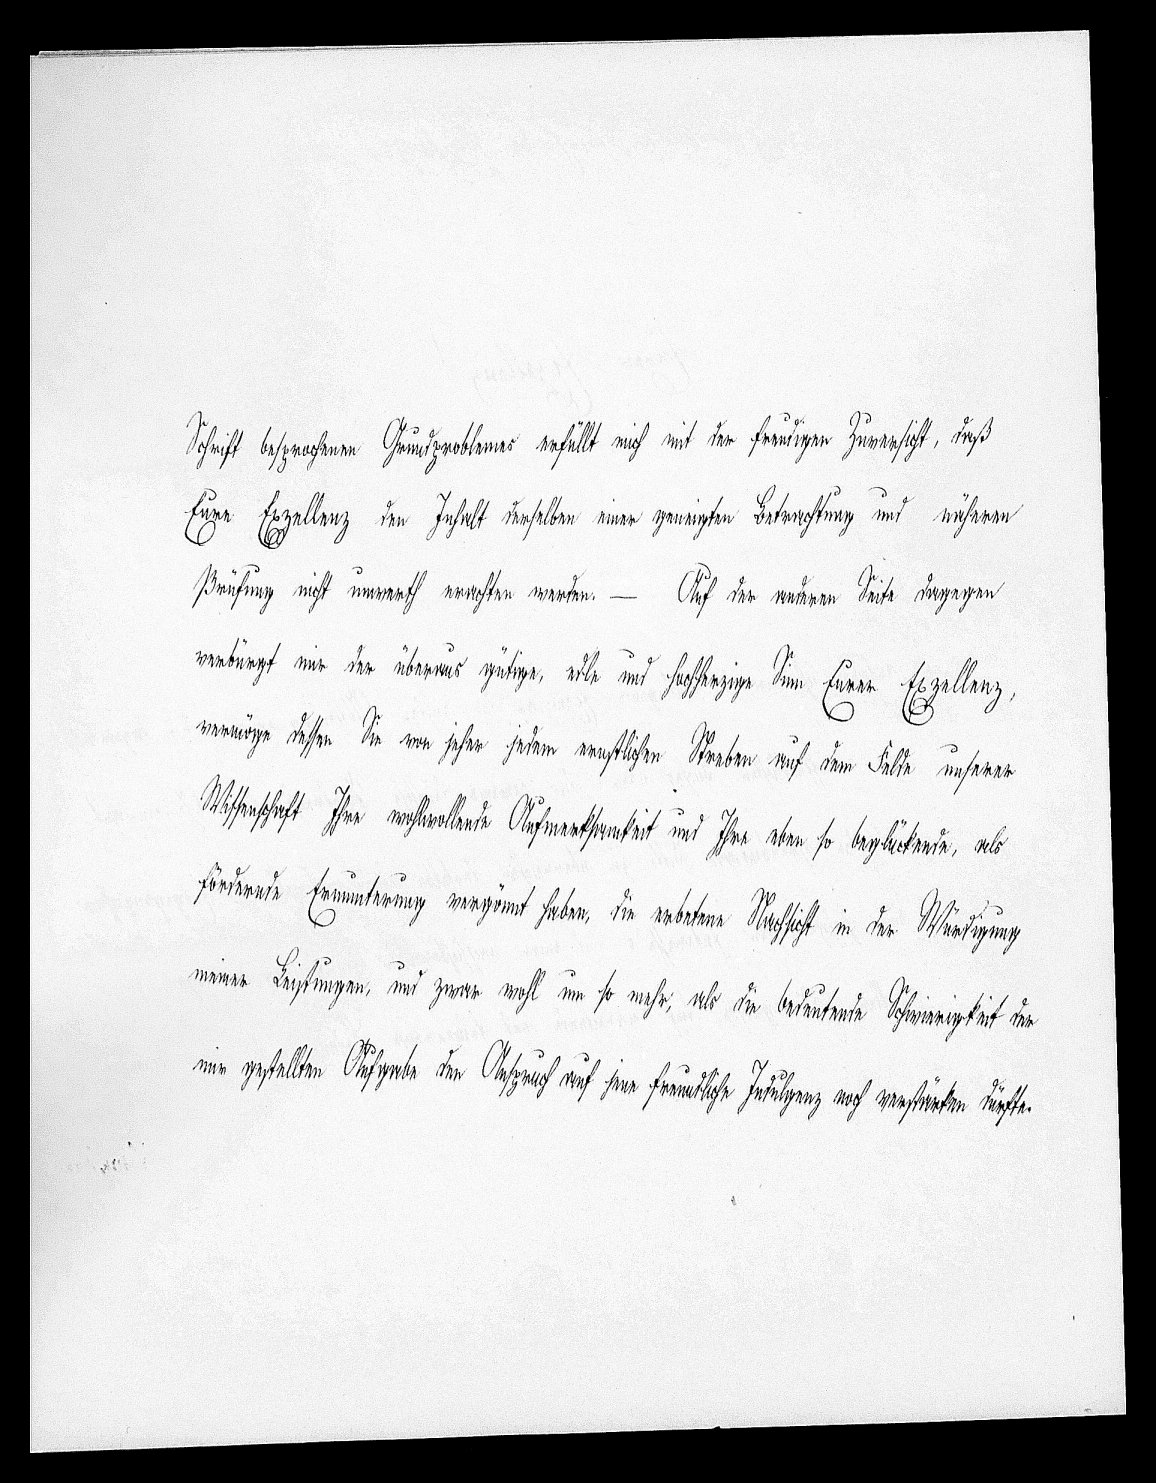 Schrift besprochenen Grundproblemes erfüllt mich mit der freudigen Zuversicht, daß
Eure Exzellenz den Inhalt derselben einer geneigten Betrachtung und näheren
Prüfung nicht unwerth erachten werden. — Auf der anderen Seite dagegen
verbürgt mir der überaus gütige, edle und hochherzige Sinn Eurer Exzellenz,
vermöge dessen Sie von jeher jedem ernstlichen Streben auf dem Felde unserer
Wissenschaft Ihre wohlwollende Aufmerksamkeit und Ihre eben so beglückende, als
fördernde Ermunterung vergönnt haben, die erbetene Nachsicht in der Würdigung
meiner Leistungen, und zwar wohl um so mehr, als die bedeutende Schwierigkeit der
mir gestellten Aufgabe den Anspruch auf jene freundliche Indulgenz noch verstärken dürfte.